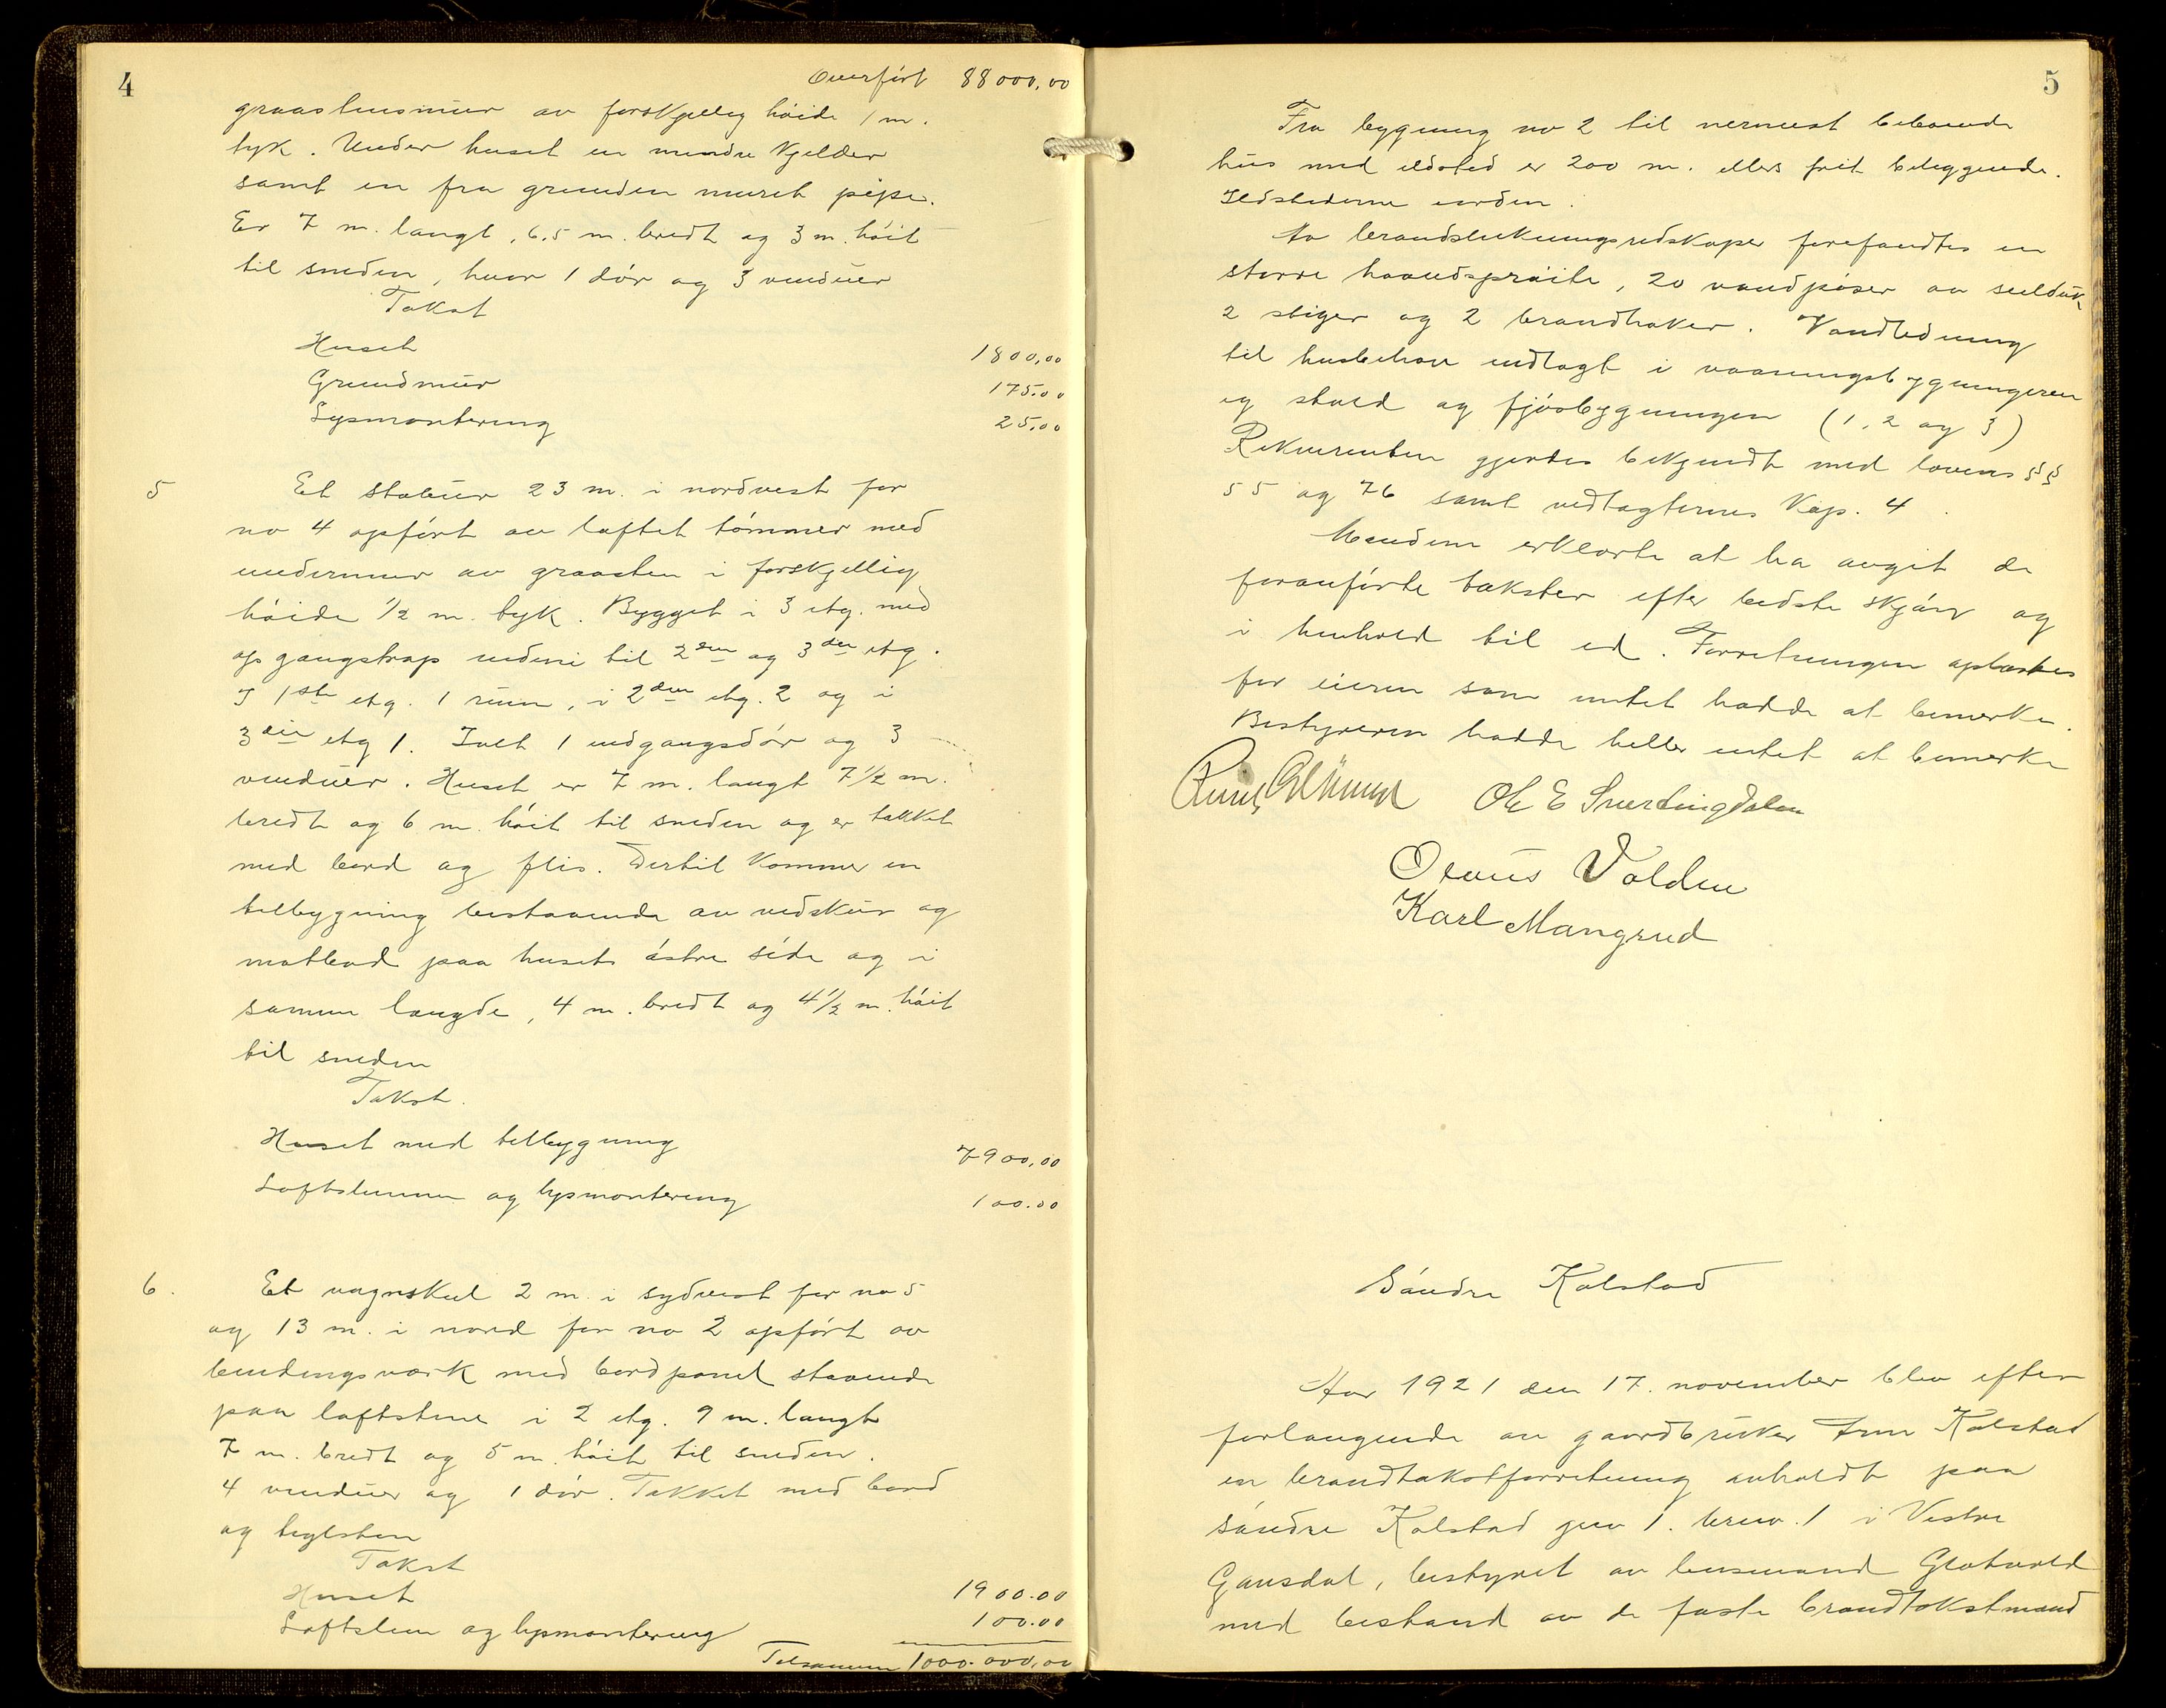 4
Overført 88000,00
graastensmur av forskjellig høide 1 m.
tyk. Under huset en mindre kjelder
samt en fra grunden muret pipe.
Er 7 m. langt, 6,5 m. bredt og 3 m. høit
til sneden, hvor 1 dør og 3 vinduer
Takst
Huset 1800,00
Grundmur 175.00
Lysmontering 25,00
5 Et stabur 23 m. i nordvest for
no 4 opført av laftet tømmer med
undermur av graasten i forskjellig
høide 1/2 m. tyk. Bygget i 3 etg. med
opgangstrap indeni til 2den og 3die etg.
I 1ste etg. 1 rum, i 2den etg. 2 og i
3die etg 1. Ialt 1 indgangsdør og 3
vinduer. Huset er 7 m. langt 7 1/2 m.
bredt og 6 m. høit til sneden og er tækket
med bord og flis. Dertil kommer en
tilbygning bestaaende av vedskur og
matbod paa husets østre side og i
samme længde, 4 m. bredt og 4 1/2 m. høit
til sneden
Takst.
Huset med tilbygning 7900,00
Loftslemmer og lysmontering 100.00
6. Et vognskul 2 m. i sydvest for no 5
og 13 m. i nord for no 2 opført av
bindingsverk med bordpanel staaende
paa loftstene i 2 etg. 9 m. langt
7 m. bredt og 5 m. høit til sneden.
4 vinduer og 1 dør. Tækket med bord
og teglsten
Takst
Huset 1900.00
Loftslem og lysmontering 100.00
Tilsammen 1000.000,00
5
Fra bygning no 2 til nermest beboende
hus med ildsted er 200 m. ellers frit beliggende.
Ildstederne iorden.
Av brandslukningsredskaper forefandtes en
større haandsprøite, 20 vandpøser av seilduk
2 stiger og 2 brandhaker. Vandledning
til husbehov indlagt i vaaningsbygningeren
og stald og fjøsbygningen (1, 2 og 3)
Rekvirenten gjordes bekjendt med lovens §§
55 og 76 samt vedtagternes Kap. 4.
Mændene erklærte at ha avgit de
foranførte takster efter bedste skjøn og
i henhold til ed. Forretningen oplæstes
for eieren som intet hadde at bemerke.
Bestyreren hadde heller intet at bemerke
Ole E Sverdingdalen
Olaus Volden
Karl Mangrud
Søndre Kolstad
Aar 1921 den 17. november blev efter
forlangende av gaardbruker Kolstad
en brandtakstforretning avholdt paa
søndre Kolstad gno 1. brno. 1 i Vestre
Gausdal, bestyret av lensmand Glatved
med bestand av de faste brandtakstmænd